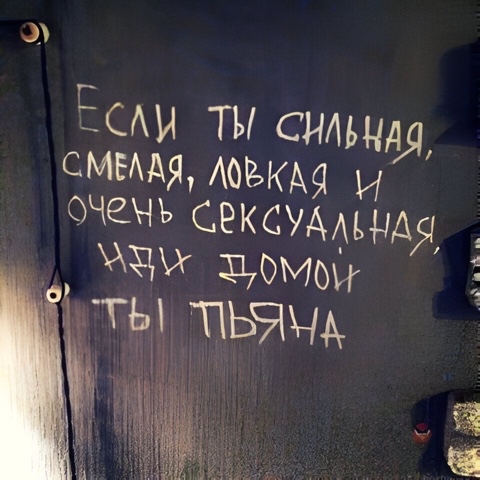 Если ты сильная,
смелая, ловкая и
очень сексуальная,
иди домой
ты пьяна